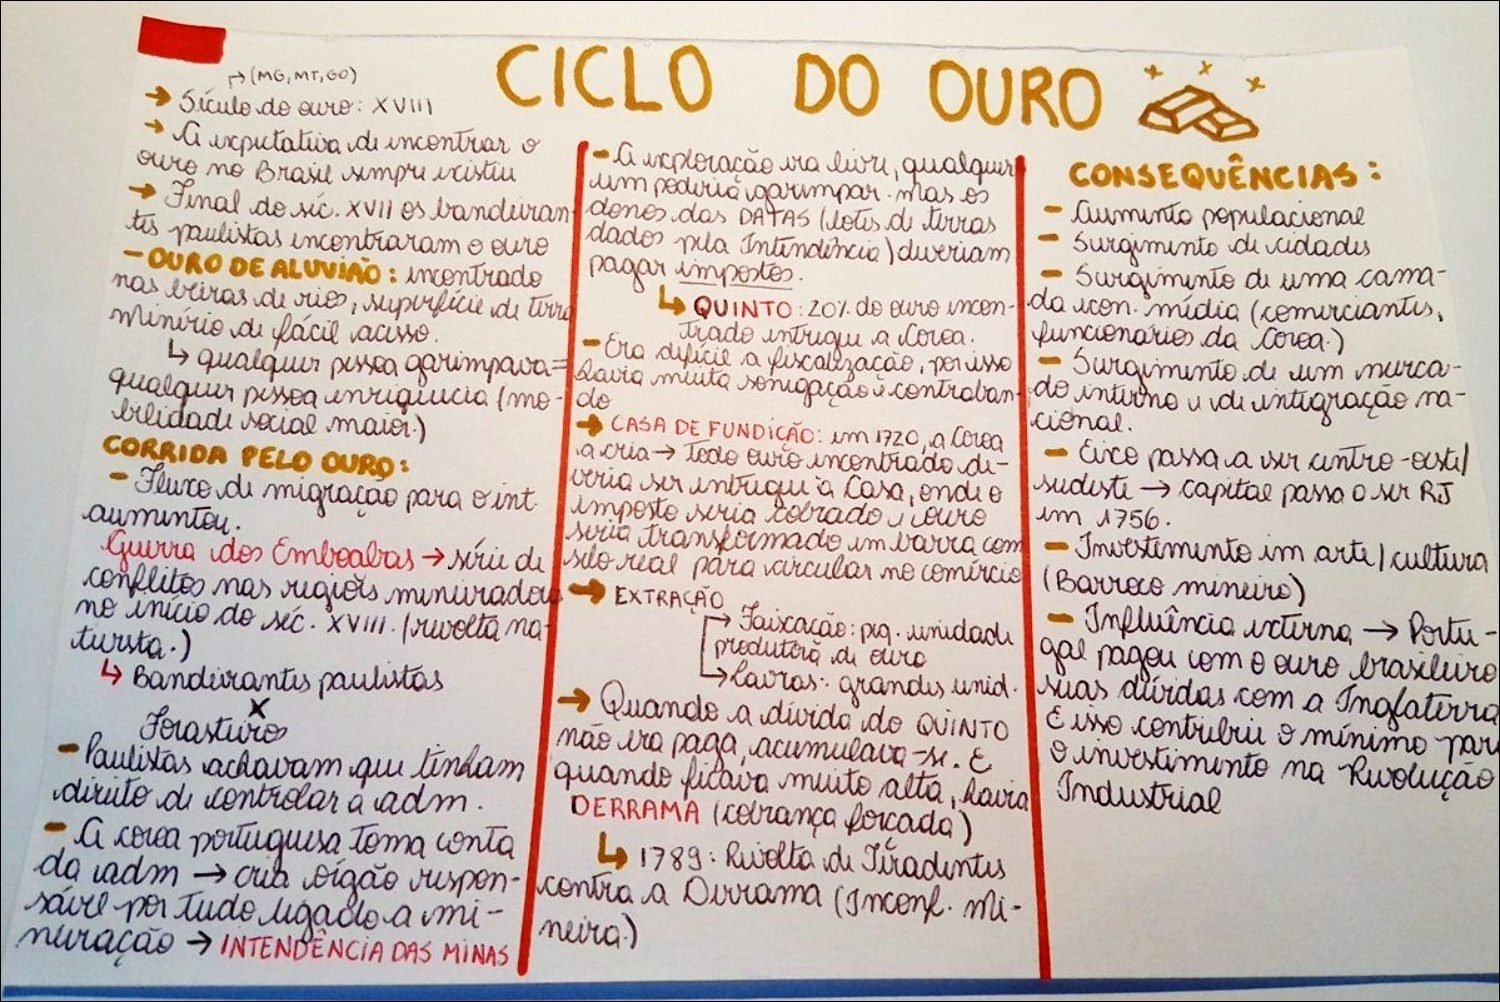 CICLO DO OURO
↱(MG, MT, GO)
→ Século do ouro: XVIII
→ A expectativa de encontrar o
ouro no Brasil sempre existiu
→ Final do séc. XVII os bandeiran
tes paulistas encontraram o ouro
- OURO DE ALUVIÃO: encontrado
nas beiras de rios, superfície de terra
minério de fácil acesso.
↳ qualquer pessoa garimpava =
qualquer pessoa enriquecia (mo-
bilidade social maior.)
CORRIDA PELO OURO:
- Fluxo de migração para o int
aumentou.
Guerra dos Emboabas → série de
conflitos nas regiões mineradoras
no início do séc. XVIII. (revolta na-
tivista.)
↳ Bandeirantes paulistas
X
Forasteiros
- Paulistas achavam que tinham
direito de controlar a adm.
- A coroa portuguesa toma conta
da adm → cria órgão respon-
sável por tudo ligado a mi-
neração → INTENDÊNCIA DAS MINAS
- A exploração era livre, qualquer
um poderia garimpar. mas os
donos das DATAS (lotes de terras
dados pela Intendência) deveriam
pagar impostos.
↳ QUINTO: 20% do ouro encon-
trado entregue a Coroa.
- Era difícil a fiscalização, por isso
havia muita sonegação e contraban-
do
→ CASA DE FUNDIÇÃO: em 1720, a Coroa
a cria → Todo ouro encontrado de-
veria ser entregue à Casa, onde o
imposto seria cobrado e ouro
seria transformado em barra com
selo real para circular no comércio
→ EXTRAÇÃO
→ Faixcação: peq. unidade
produtora de ouro
→ Lavras: grandes unid.
→ Quando a dívida do QUINTO
não era paga, acumulava-se. E
quando ficava muito alta, havia
DERRAMA (cobrança forçada)
↳ 1789: Revolta de Tiradentes
contra a Derrama (Inconf. Mi-
neira.)
CONSEQUÊNCIAS:
- Aumento populacional
- Surgimento de cidades
- Surgimento de uma cama-
da econ. média (comerciantes,
funcionários da Coroa.)
- Surgimento de um merca-
do interno e de integração na-
cional.
- Eixo passa a ser centro-oeste/
sudeste → capital passa o ser RJ
em 1756.
- Investimento em arte/cultura
(Barroco mineiro)
- Influência externa → Portu-
gal pagou com o ouro brasileiro
suas dívidas com a Inglaterra
E isso contribuiu o mínimo par
o investimento na Revolução
Industrial